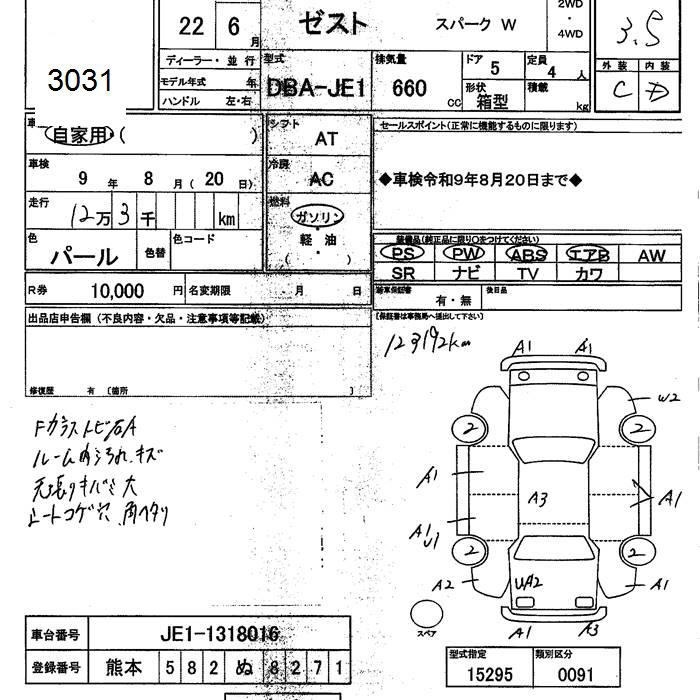 22 6月 ゼスト スパーク W 2WD・4WD 3.5
ディーラー・並行 型式 排気量 ドア 5 定員 4人 外装 内装
3031 モデル年式 年 DBA-JE1 660cc 形状 箱型 積載 kg C D
ハンドル 左・右
自家用 ( ) シフト AT セールスポイント(正常に機能するものに限ります)
車検 9年 8月 (20日) 冷房 AC ◆車検令和9年8月20日まで◆
走行 12万3千 km 燃料 ガソリン・軽油・( )
色 パール 色替 色コード 装備品(純正品に限り○をつけてください)
PS PW ABS エアB AW
SR ナビ TV カワ
R券 10,000円 名変期限 ・月 日 新車保証書 有・無 後日品
出品店申告欄 (不良内容・欠品・注意事項等記載) (保証書は事務局へ提出して下さい)
123192km
修復歴 有 (箇所 )
Fガラストビ石A
ルーム内汚れ、キズ
天張りキバミ大
シートコゲ穴、角ヘタリ
A1 A1
W2
2 2
A1 A3 A1
A1 U1
2 2
A2 UA2 A1
スペア A1 A3
車台番号 JE1-1318016
登録番号 熊本 582 ぬ 8271
型式指定 類別区分
15295 0091